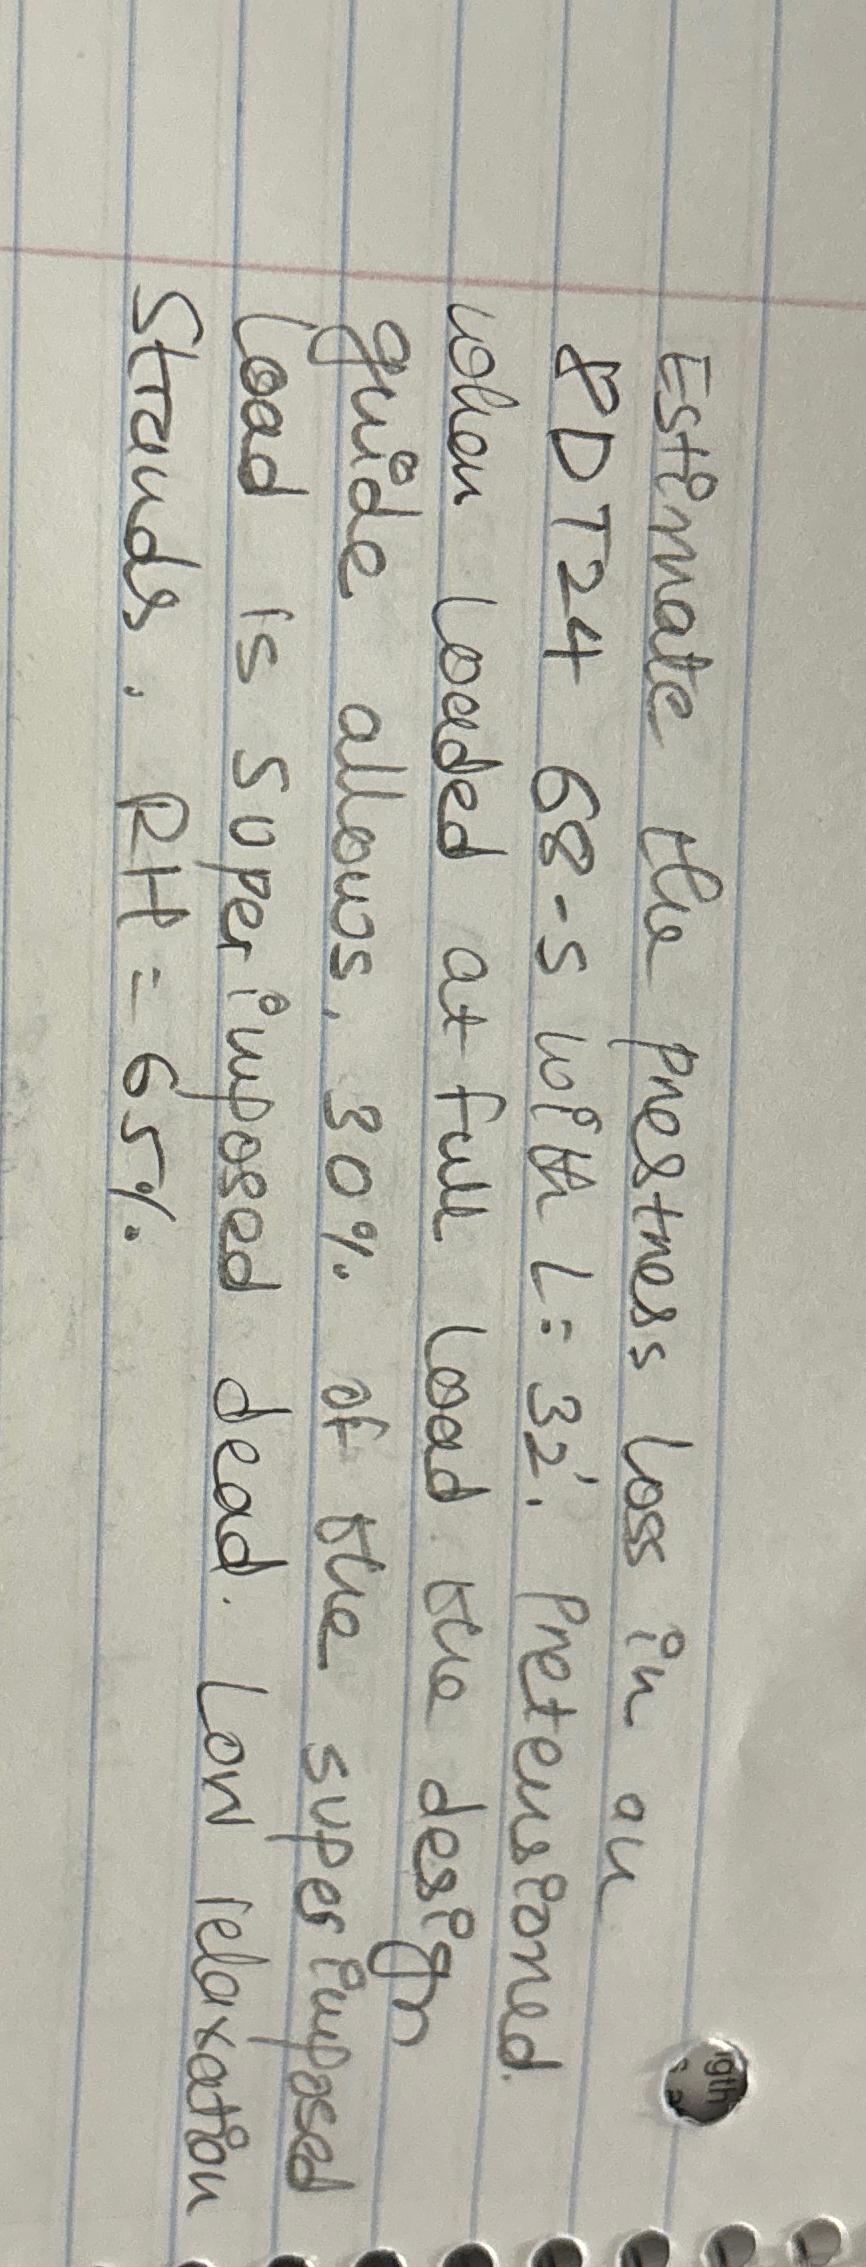 Estimate the prestress loss in an
8DT24 68-S with L = 32'. Pretensioned.
when loaded at full load the design
guide allows. 30% of the superimposed
load is superimposed dead. Low relaxation
Strands. RH = 65%.